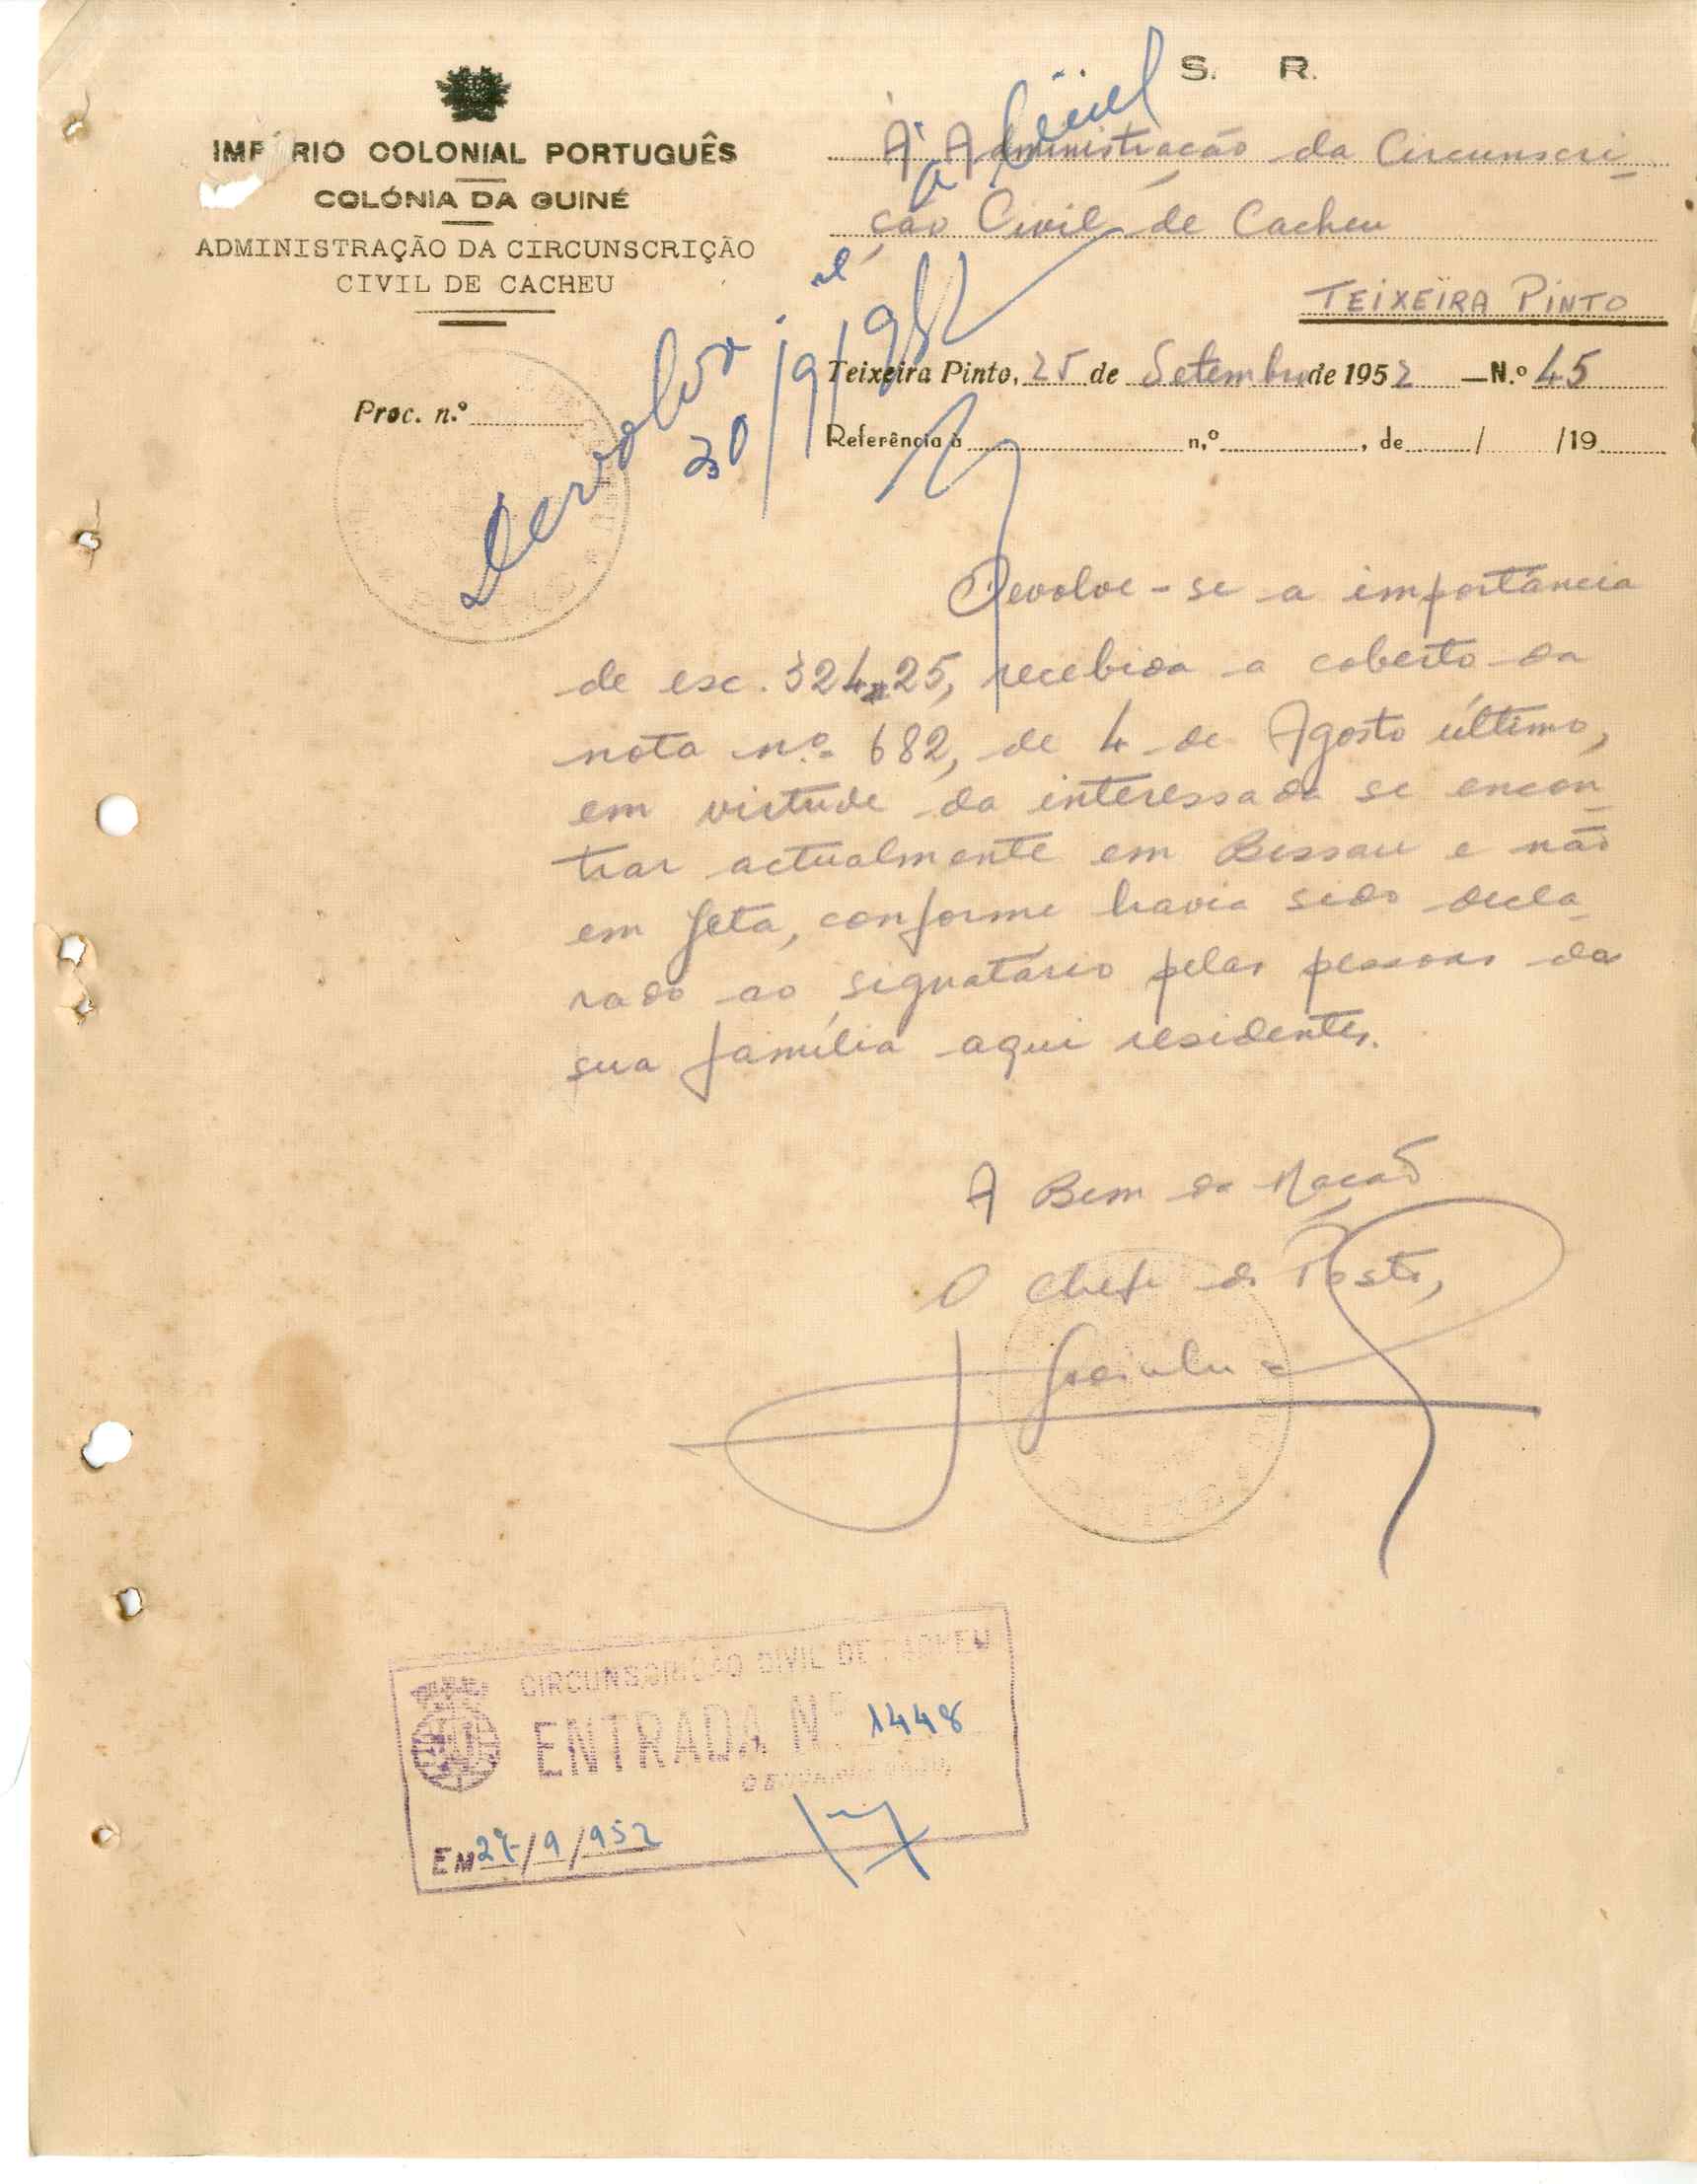 S. R.
IMP RIO COLONIAL PORTUGUÊS
COLÓNIA DA GUINÉ
ADMINISTRAÇÃO DA CIRCUNSCRIÇÃO
CIVIL DE CACHEU
À Administração da Circunscri-
ção Civil de Cacheu
TEIXEIRA PINTO
Teixeira Pinto, 25 de Setembro de 1952 —N.º 45
Proc. n.º
Referência à n.º , de / /19
Devolver à
30/9/952
Devolve-se a importância
de esc. 324$25, recebida a coberto da
nota n.º 682, de 4 de Agosto último,
em virtude da interessada se encon-
trar actualmente em Bissau e não
em Jeta, conforme havia sido decla-
rado ao signatário pelas pessoas da
sua família aqui residentes.
A Bem da Nação
O Chefe de Posto,
CIRCUNSCRIÇÃO CIVIL DE CACHEU
ENTRADA Nº 1448
EM 27/9/952